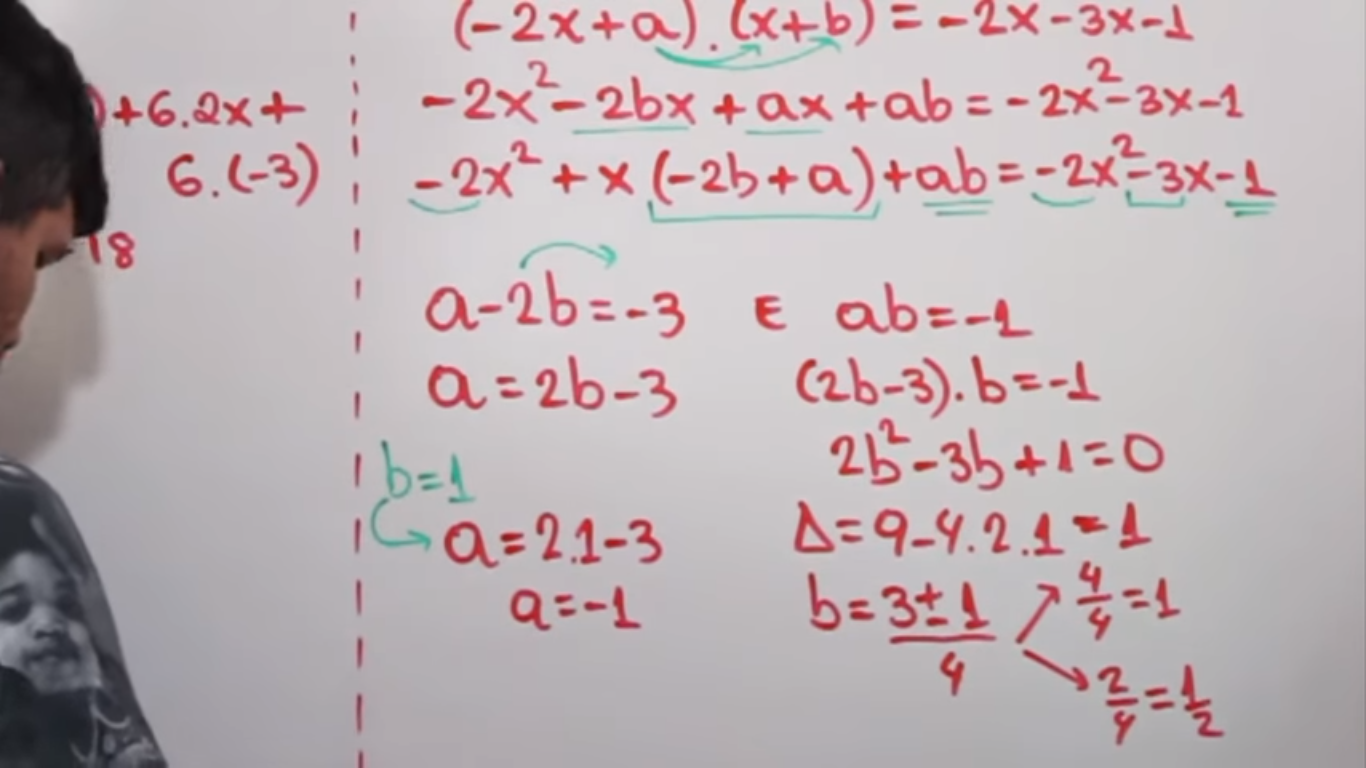 )+6.2x+
6.(-3)
18
(-2x+a).(x+b)=-2x-3x-1
-2x²-2bx+ax+ab=-2x²-3x-1
-2x²+x(-2b+a)+ab=-2x²-3x-1
a-2b=-3 E ab=-1
a=2b-3
(2b-3).b=-1
2b²-3b+1=0
b=1
a=2.1-3
a=-1
Δ=9-4.2.1=1
b=3±1/4
4/4=1
2/4=1/2